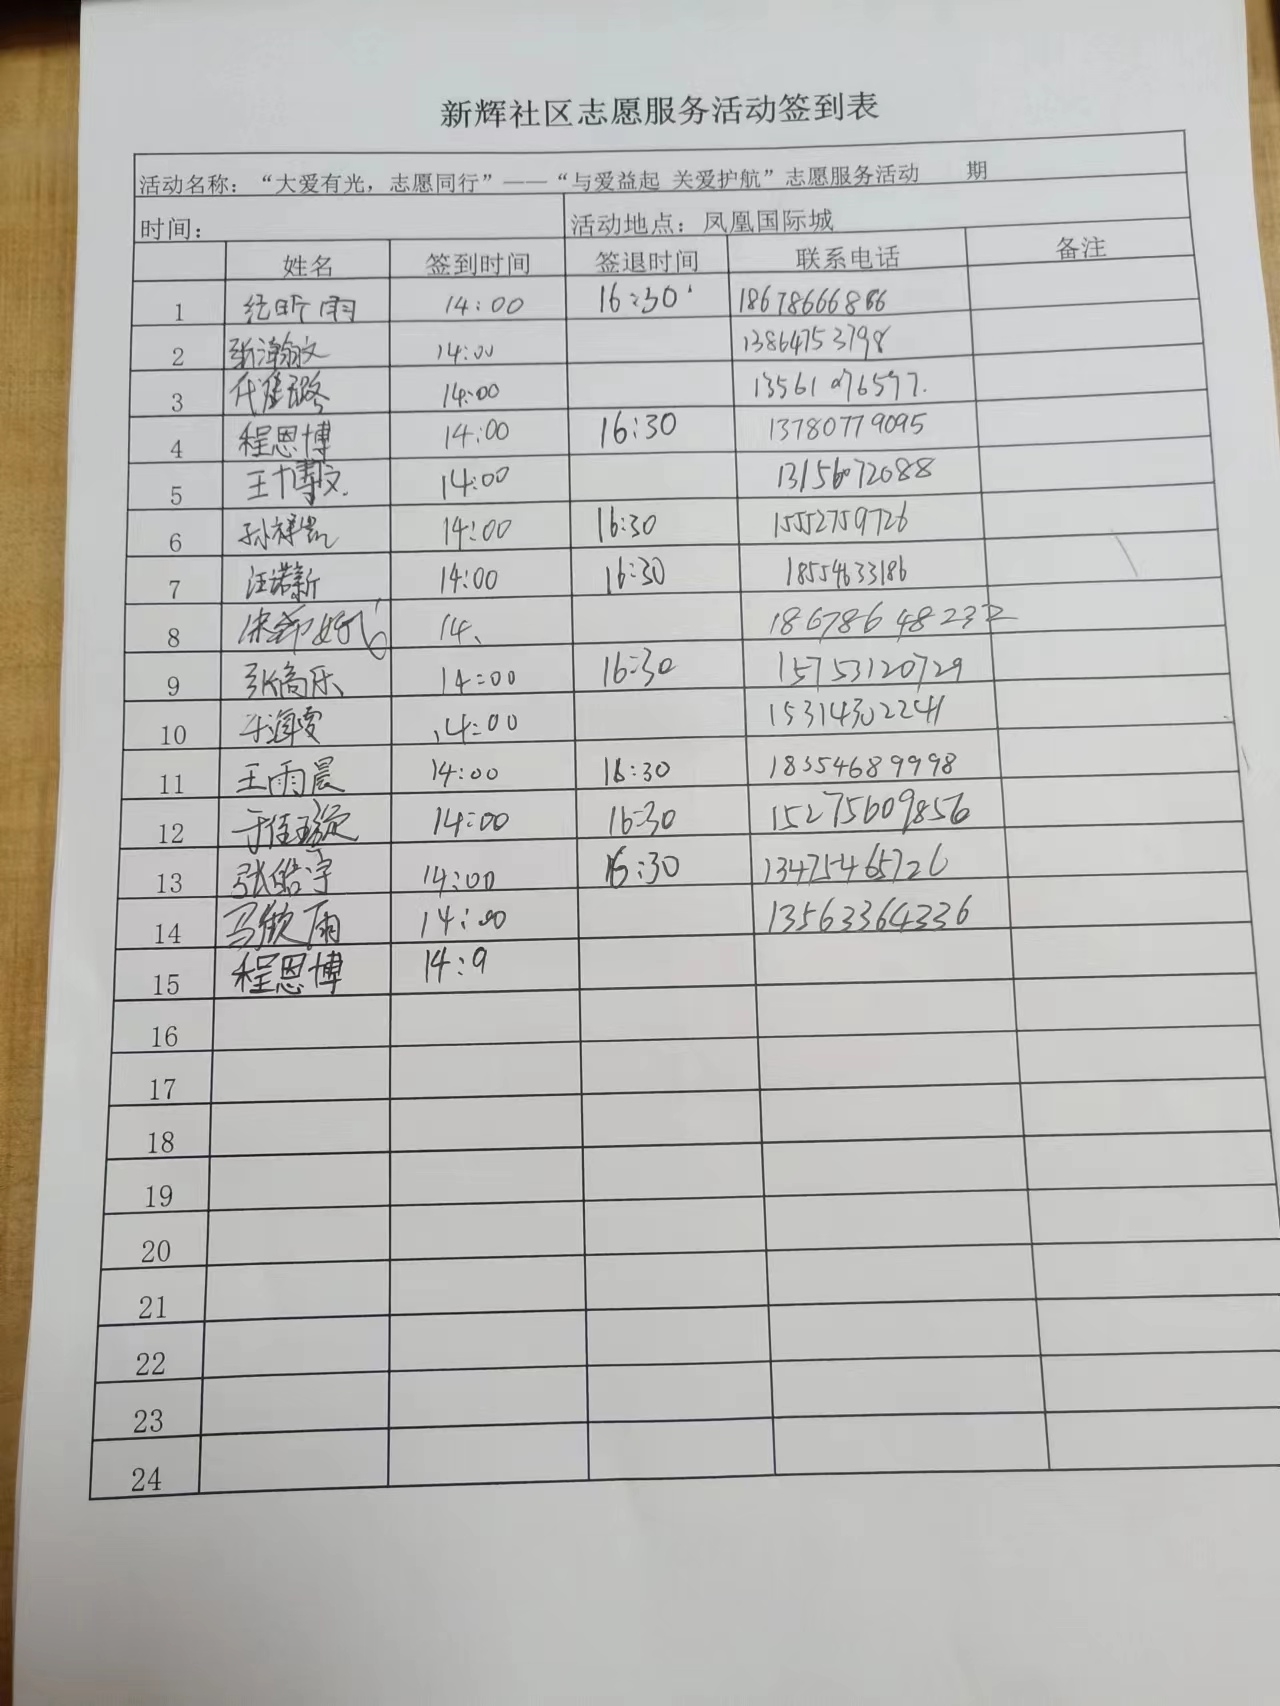 新辉社区志愿服务活动签到表
活动名称：“大爱有光，志愿同行”——“与爱益起 关爱护航”志愿服务活动 期
时间： 活动地点：凤凰国际城
姓名 签到时间 签退时间 联系电话 备注
1 纪昕雨 14:00 16:30 18678666866
2 张瀚文 14:00 13864753798
3 代佳璐 14:00 13561076577
4 程恩博 14:00 16:30 13780779095
5 王博文 14:00 13156072088
6 孙祥凯 14:00 16:30 15552759726
7 汪诺新 14:00 16:30 18554633186
8 14、 18678648232
9 张高乐 14:00 16:30 15753120729
10 于海雯 14:00 15314302241
11 王雨晨 14:00 16:30 18354689998
12 于佳璇 14:00 16:30 15275609856
13 张皓宇 14:00 16:30 13475465726
14 马欣雨 14:00 13563364336
15 程恩博 14:9
16
17
18
19
20
21
22
23
24